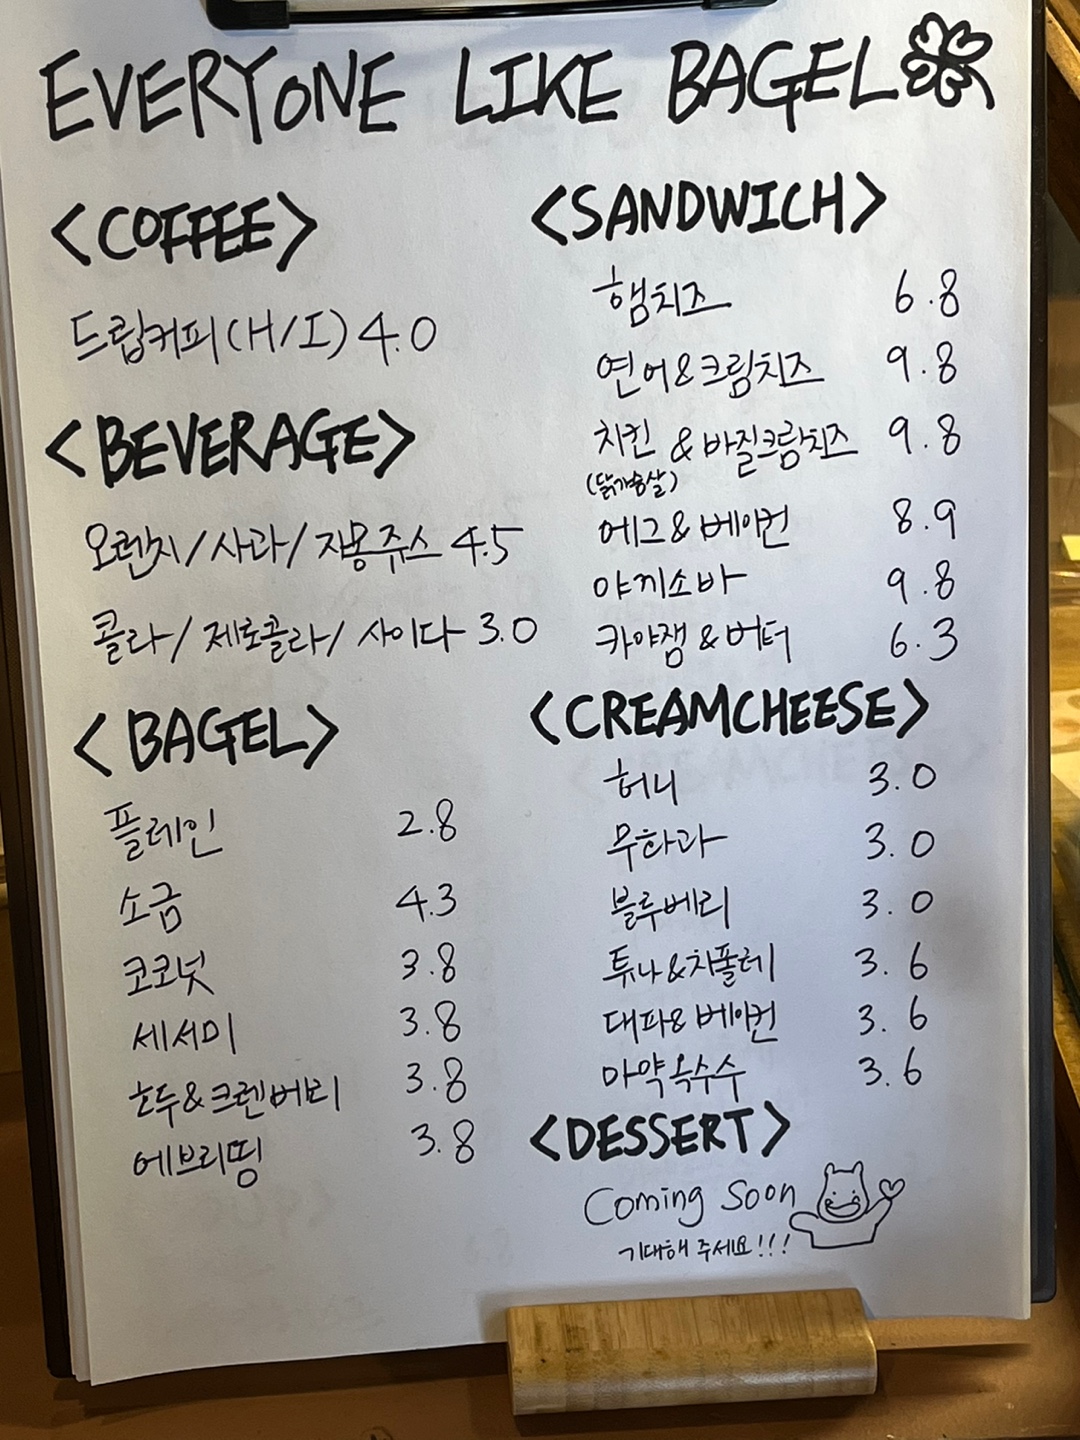 EVERYONE LIKE BAGEL
<COFFEE>
드립커피(H/I) 4.0
<BEVERAGE>
오렌지/사과/자몽쥬스 4.5
콜라/제로콜라/사이다 3.0
<BAGEL>
플레인 2.8
소금 4.3
코코넛 3.8
세서미 3.8
호두&크렌베리 3.8
에브리띵 3.8
<SANDWICH>
햄치즈 6.8
연어&크림치즈 9.8
치킨 & 바질크림치즈 9.8
(닭가슴살)
에그&베이컨 8.9
야끼소바 9.8
카야잼&버터 6.3
<CREAMCHEESE>
허니 3.0
무화과 3.0
블루베리 3.0
튜나&치폴레 3.6
대파&베이컨 3.6
마약옥수수 3.6
<DESSERT>
Coming Soon
기대해 주세요!!!